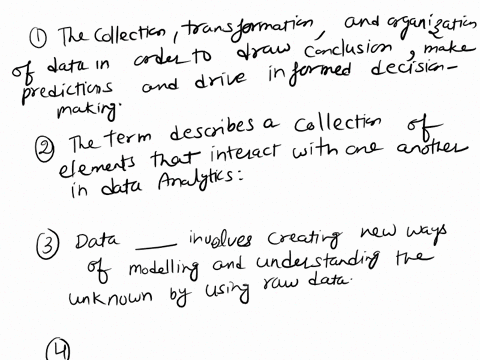 ① The Collection, transformation, and organization
of data in order to draw Conclusion, make
predictions and drive informed decision-
making.
② The term describes a collection of
elements that interact with one another
in data Analytics:
③ Data ___ involves creating new ways
of modelling and understanding the
unknown by using raw data.
④